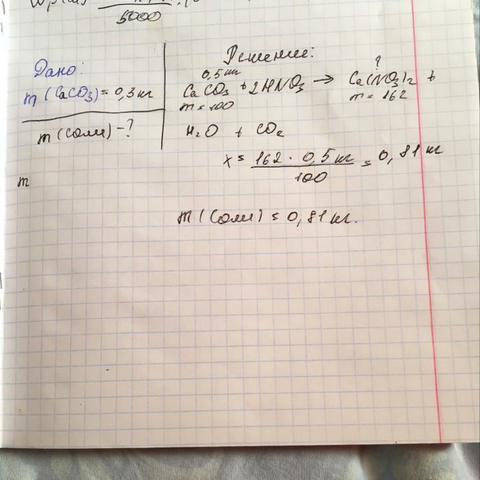 5000
Дано:
m (CaCO3) = 0,3 кг
m (соли) - ?
m
Решение:
0,5 кг ?
CaCO3 + 2HNO3 → Ca(NO3)2 +
m = 100 m = 162
H2O + CO2
x = 162 · 0,5 кг / 100 = 0,81 кг
m (соли) = 0,81 кг.